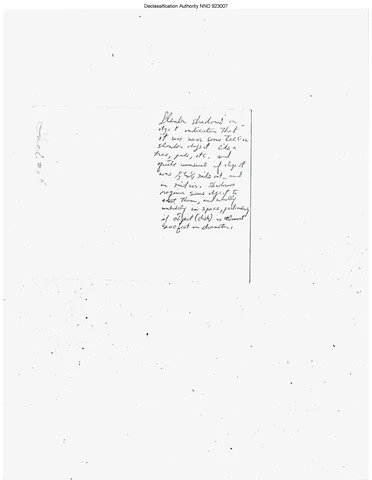 Declassification Authority NND 923007
Slender shadows on
object indicates that
it was near some tall or
slender object like a
tree, pole, etc. and
quite unusual if object
was mile out and
in midair. Shadows
require some object to
cast them, and wholly
unlikely in space, particularly
if object (disk) is about
500 feet in diameter.